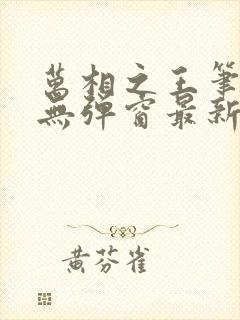 萬相之王筆
無彈窗最新
黃芬雀